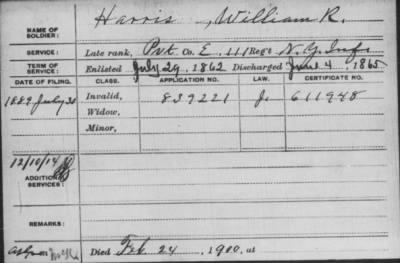 Harris, William R.
NAME OF SOLDIER:
SERVICE: Late rank, Pvt. Co. E, 111 Reg't N. Y. Inf.
TERM OF SERVICE: Enlisted July 29, 1862 Discharged June 4, 1865
DATE OF FILING. CLASS. APPLICATION NO. LAW. CERTIFICATE NO.
1889 July 30 Invalid, 839221 J. 611948
Widow,
Minor,
12/10/14
ADDITIONAL SERVICES:
REMARKS:
Died Feb. 24, 1900, at